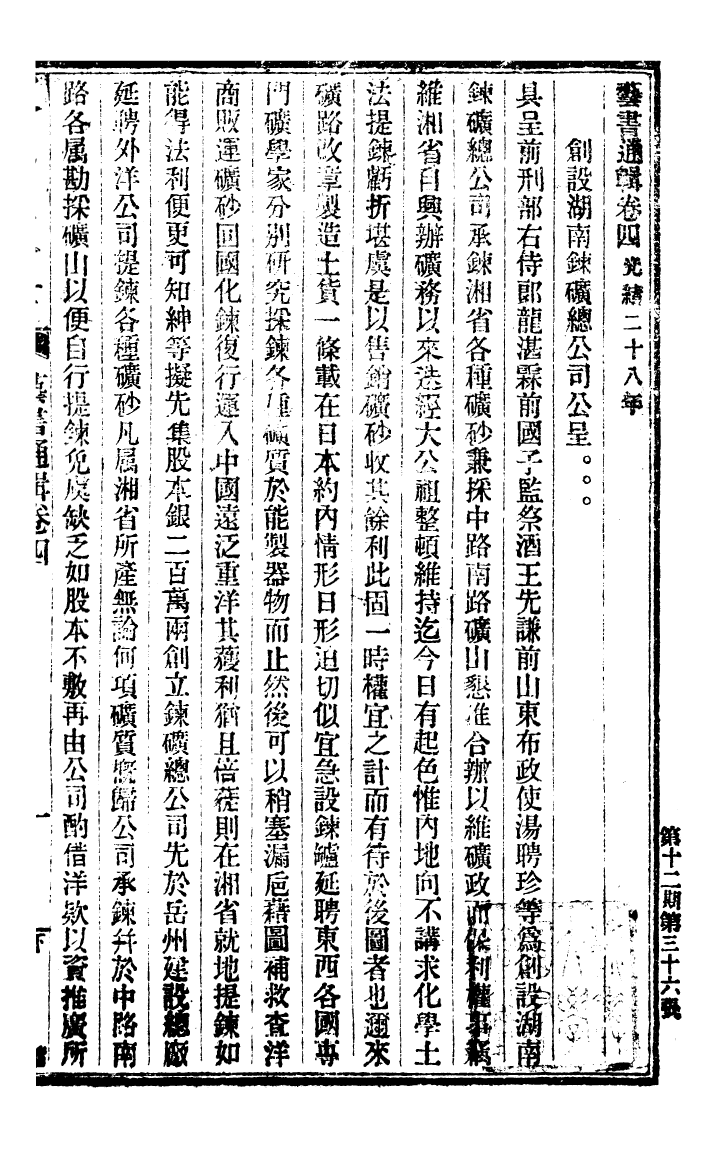 藝書通輯卷四 光緒二十八年
創設湖南鍊礦總公司公呈。。。
具呈前刑部右侍郎龍湛霖前國子監祭酒王先謙前山東布政使湯聘珍等爲創設湖南
鍊礦總公司承鍊湘省各種礦砂兼採中路南路礦山懇准合辦以維礦政而保利權事竊
維湘省自興辦礦務以來迭經大公祖整頓維持迄今日有起色惟內地向不講求化學土
法提鍊虧折堪虞是以售銷礦砂收其餘利此固一時權宜之計而有待於後圖者也邇來
礦路改章製造土貨一條載在日本約內情形日形迫切似宜急設鍊鑪延聘東西各國專
門礦學家分別研究採鍊各種礦質於能製器物而止然後可以稍塞漏巵藉圖補救查洋
商販運礦砂回國化鍊復行運入中國遠泛重洋其獲利猶且倍蓰則在湘省就地提鍊如
能得法利便更可知紳等擬先集股本銀二百萬兩創立鍊礦總公司先於岳州建設總廠
延聘外洋公司提鍊各種礦砂凡属湘省所產無論何項礦質槪歸公司承鍊幷於中路南
路各属勘採礦山以便自行提鍊免虞缺乏如股本不敷再由公司酌借洋欵以資推廣所
藝書通輯卷四
一
第十二期第三十六號